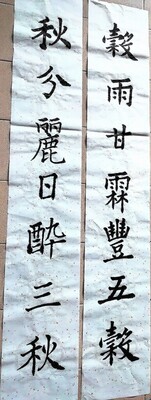 穀雨甘霖豐五穀
秋分麗日酔三秋